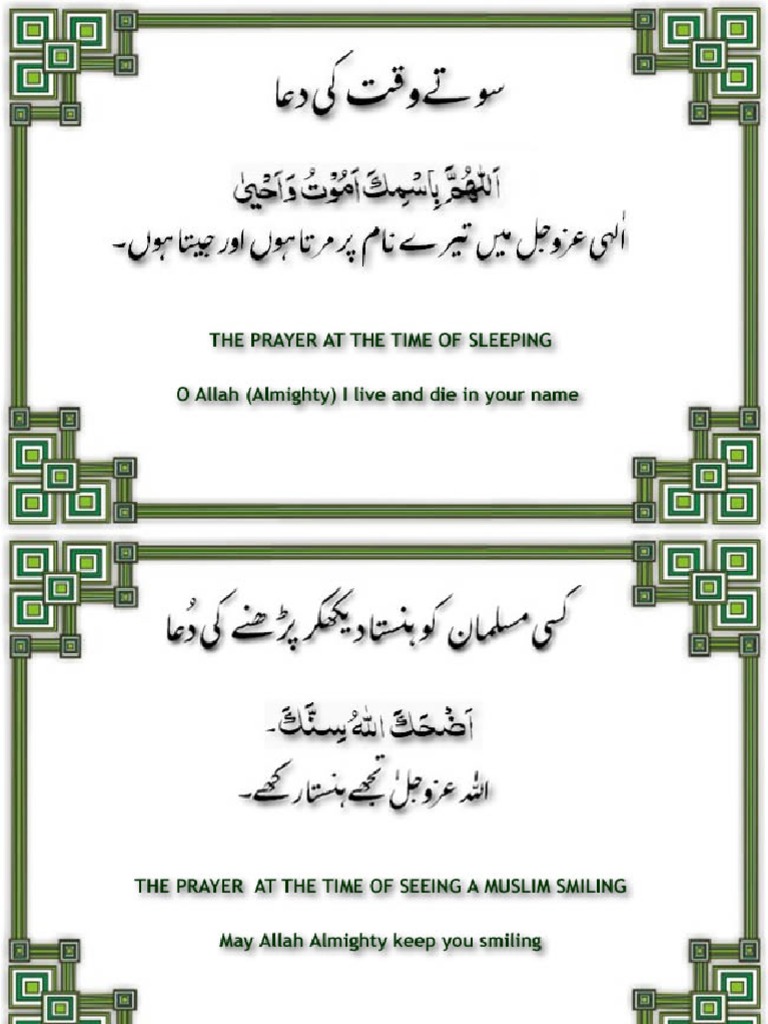 سوتے وقت کی دعا
اَللّٰهُمَّ بِاسْمِكَ اَمُوْتُ وَاَحْيٰى
اِلٰہی عزوجل میں تیرے نام پر مرتا ہوں اور جیتا ہوں۔
THE PRAYER AT THE TIME OF SLEEPING
O Allah (Almighty) I live and die in your name
کسی مسلمان کو ہنستا دیکھکر پڑھنے کی دُعا
اَضْحَكَ اللهُ سِنَّكَ۔
اللہ عزوجل تجھے ہنستا رکھے۔
THE PRAYER AT THE TIME OF SEEING A MUSLIM SMILING
May Allah Almighty keep you smiling